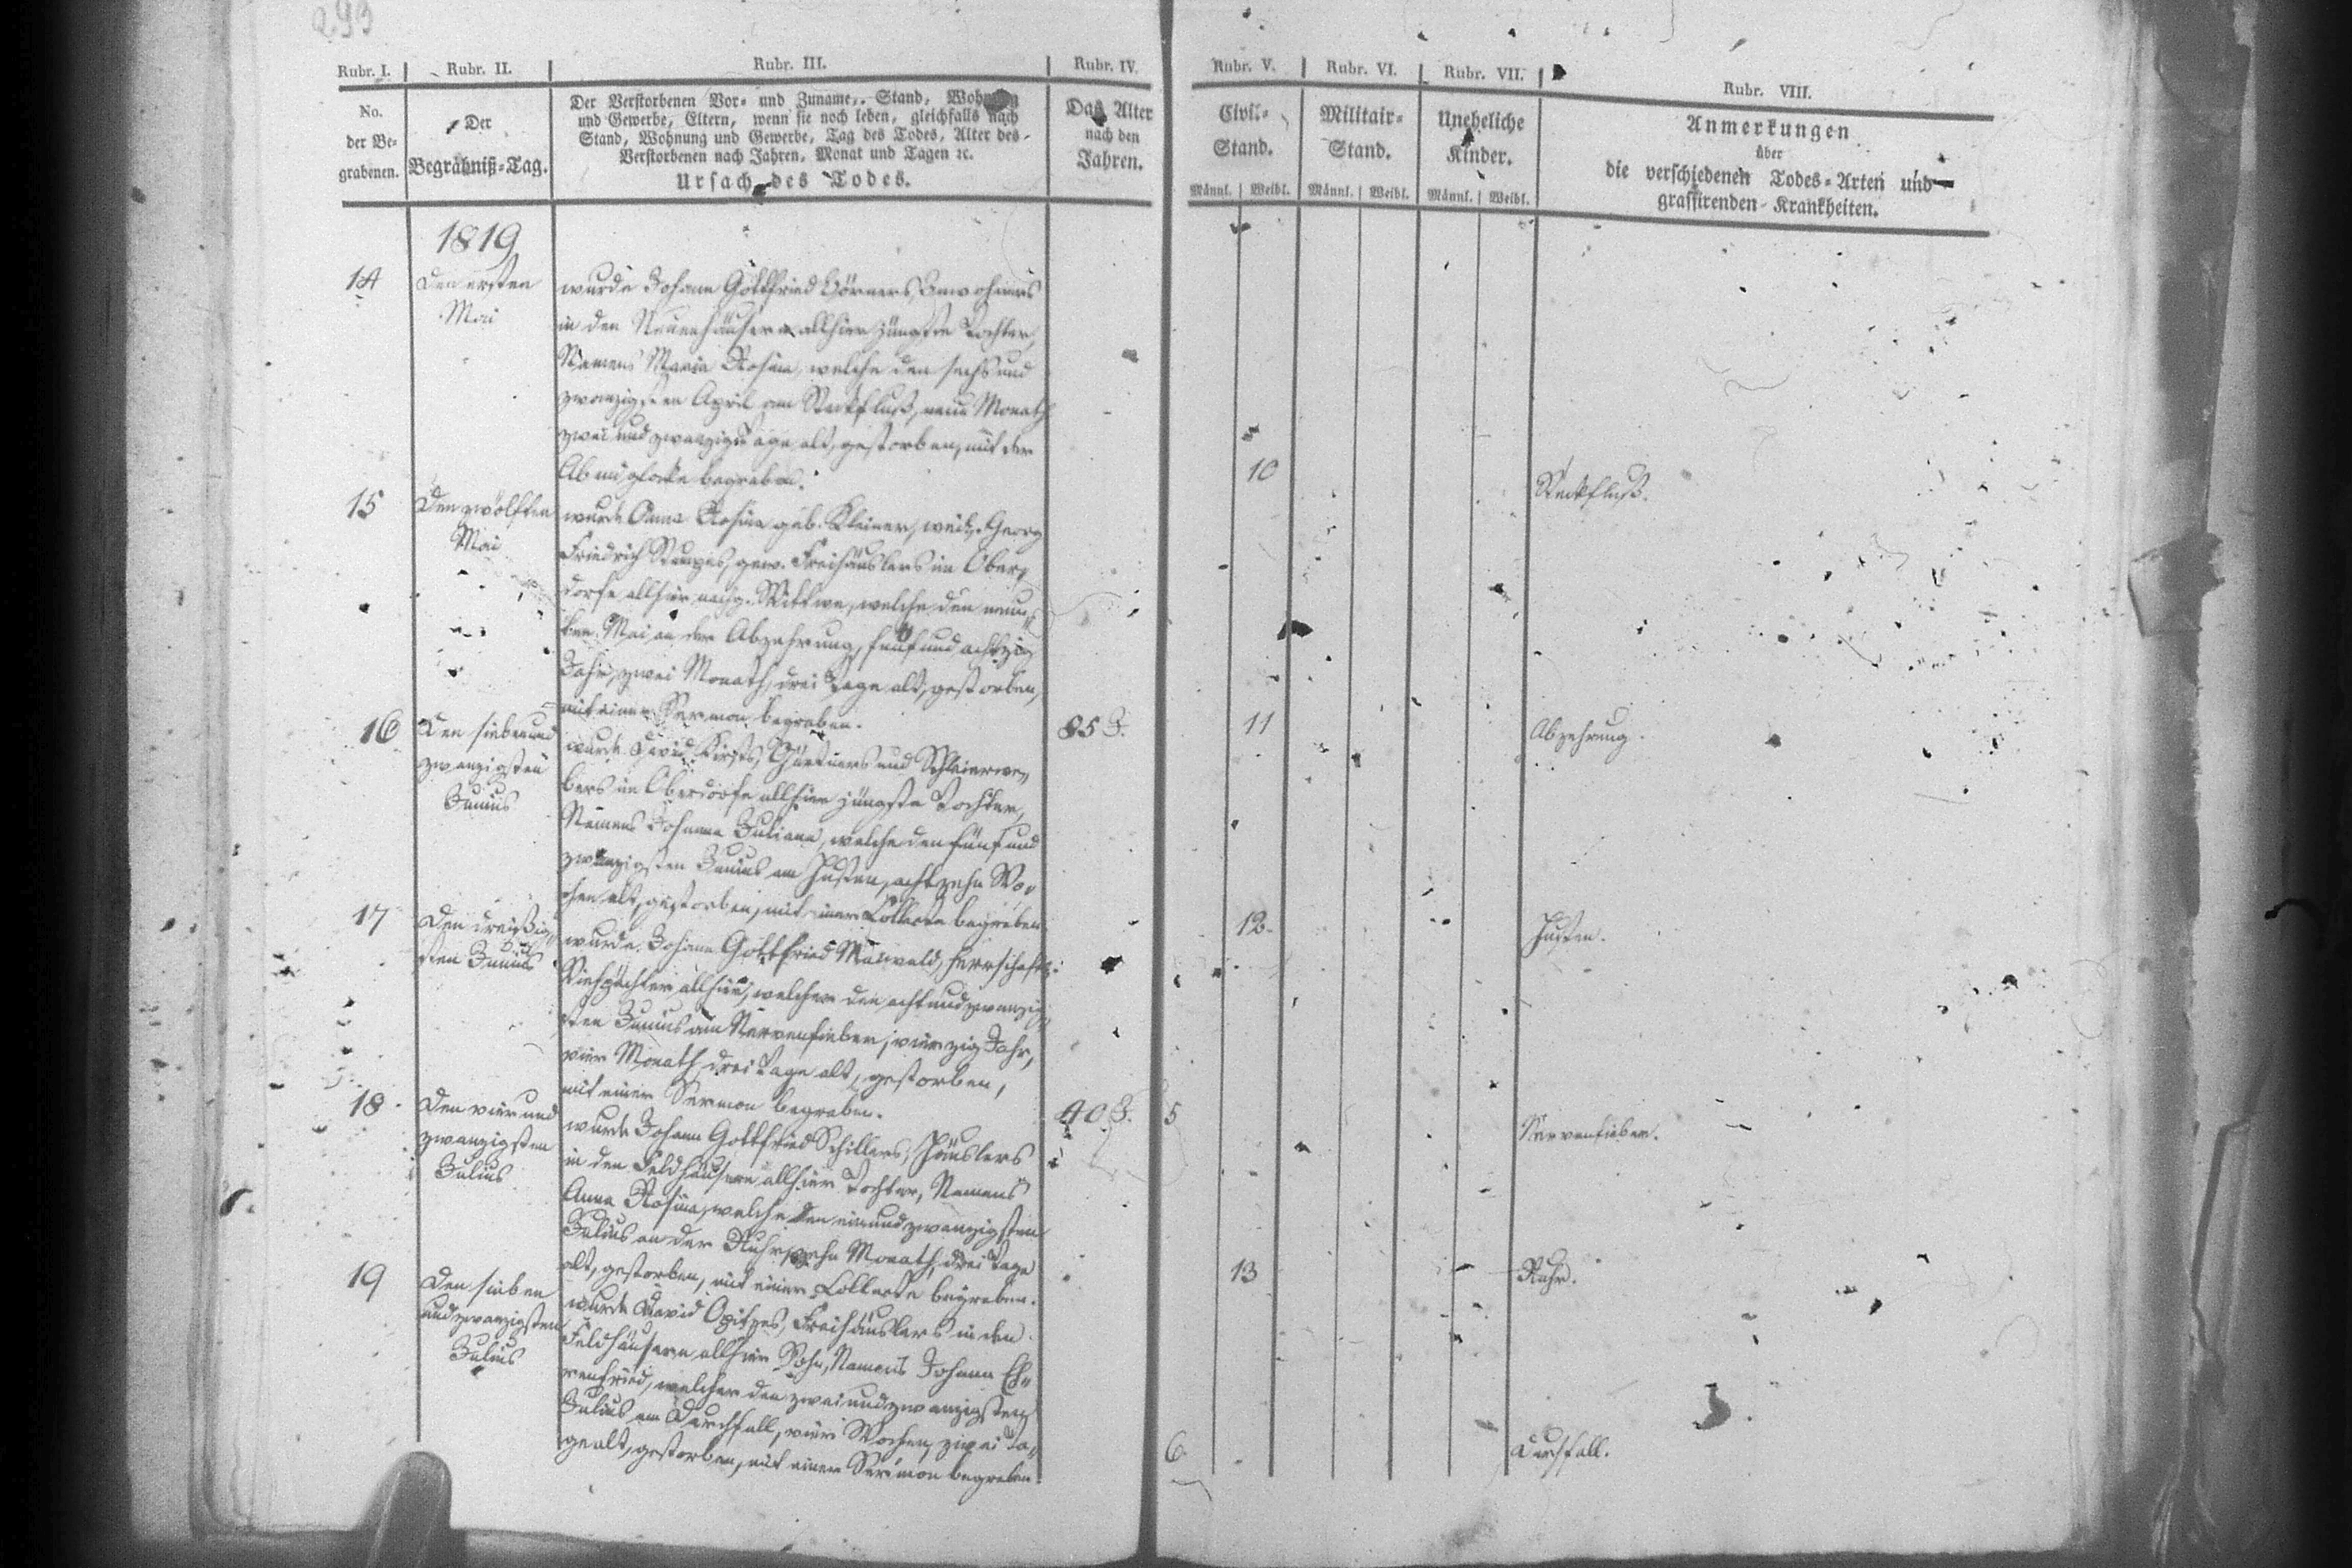 293
Rubr. I. Rubr. II. Rubr. III. Rubr. IV. Rubr. V. Rubr. VI. Rubr. VII. Rubr. VIII.
No.
der Be-
grabenen.
Der
Begräbniß-Tag.
Der Verstorbenen Vor- und Zuname, Stand, Wohnung
und Gewerbe, Eltern, wenn sie noch leben, gleichfalls nach
Stand, Wohnung und Gewerbe, Tag des Todes, Alter des
Verstorbenen nach Jahren, Monat und Tagen ꝛc.
Ursach des Todes.
Das Alter
nach den
Jahren.
Civil-
Stand.
Männl. Weibl.
Militair-
Stand.
Männl. Weibl.
Uneheliche
Kinder.
Männl. Weibl.
Anmerkungen
über
die verschiedenen Todes-Arten und
grassirenden Krankheiten.
1819
14
Den ersten
Mai
wurde Johann Gottfried Hörners, Inwohners
in den Neuenhäusern allhier jüngste Tochter,
Namens Maria Rosina, welche den sechs und
zwanzigsten April am Steckfluß, neun Monath
zwei und zwanzig Tage alt, gestorben, mit der
glocke begraben.
10
Steckfluß.
15
Den zwölften
Mai
wurde Anna Rosina geb. Kleiner, weil. Georg
Friedrich gew. Freihäuslers im Ober-
dorfe allhier nachg. Wittwe, welche den neun-
ten Mai an der Abzehrung, fünf und achtzig
Jahr, zwei Monath, drei Tage alt, gestorben,
mit einer Sermon begraben.
85 J.
11
Abzehrung.
16
Den sieben und
zwanzigsten
Junius
wurde David Kirsts, Gärtners und Schleierwe-
bers im Oberdorfe allhier jüngste Tochter,
Namens Johanna Juliana, welche den fünf und
zwanzigsten Junius am Husten, achtzehn Wo-
chen alt, gestorben, mit einer Collecte begraben.
12.
Husten.
17
Den dreißig-
sten Junius
wurde Johann Gottfried Maiwald, herrschaftl.
Viehpächter allhier, welcher den acht und zwanzig-
sten Junius am Nervenfieber, vierzig Jahr,
vier Monath, drei Tage alt, gestorben,
mit einer Sermon begraben.
40 J.
5
Nervenfieber.
18
Den vier und
zwanzigsten
Julius
wurde Johann Gottfried Schillers, Häuslers
in den Feldhäusern allhier Tochter, Namens
Anna Rosina, welche den ein und zwanzigsten
Julius an der Ruhr, zehn Monath, drei Tage
alt, gestorben, mit einer Collecte begraben.
13
Ruhr.
19
Den sieben
und zwanzigsten
Julius
wurde David Opitzes, Freihäuslers in den
Feldhäusern allhier Sohn, Namens Johann Eh-
renfried, welcher den zwei und zwanzigsten
Julius am Durchfall, vier Wochen, zwei Ta-
ge alt, gestorben, mit einer Sermon begraben.
6
Durchfall.